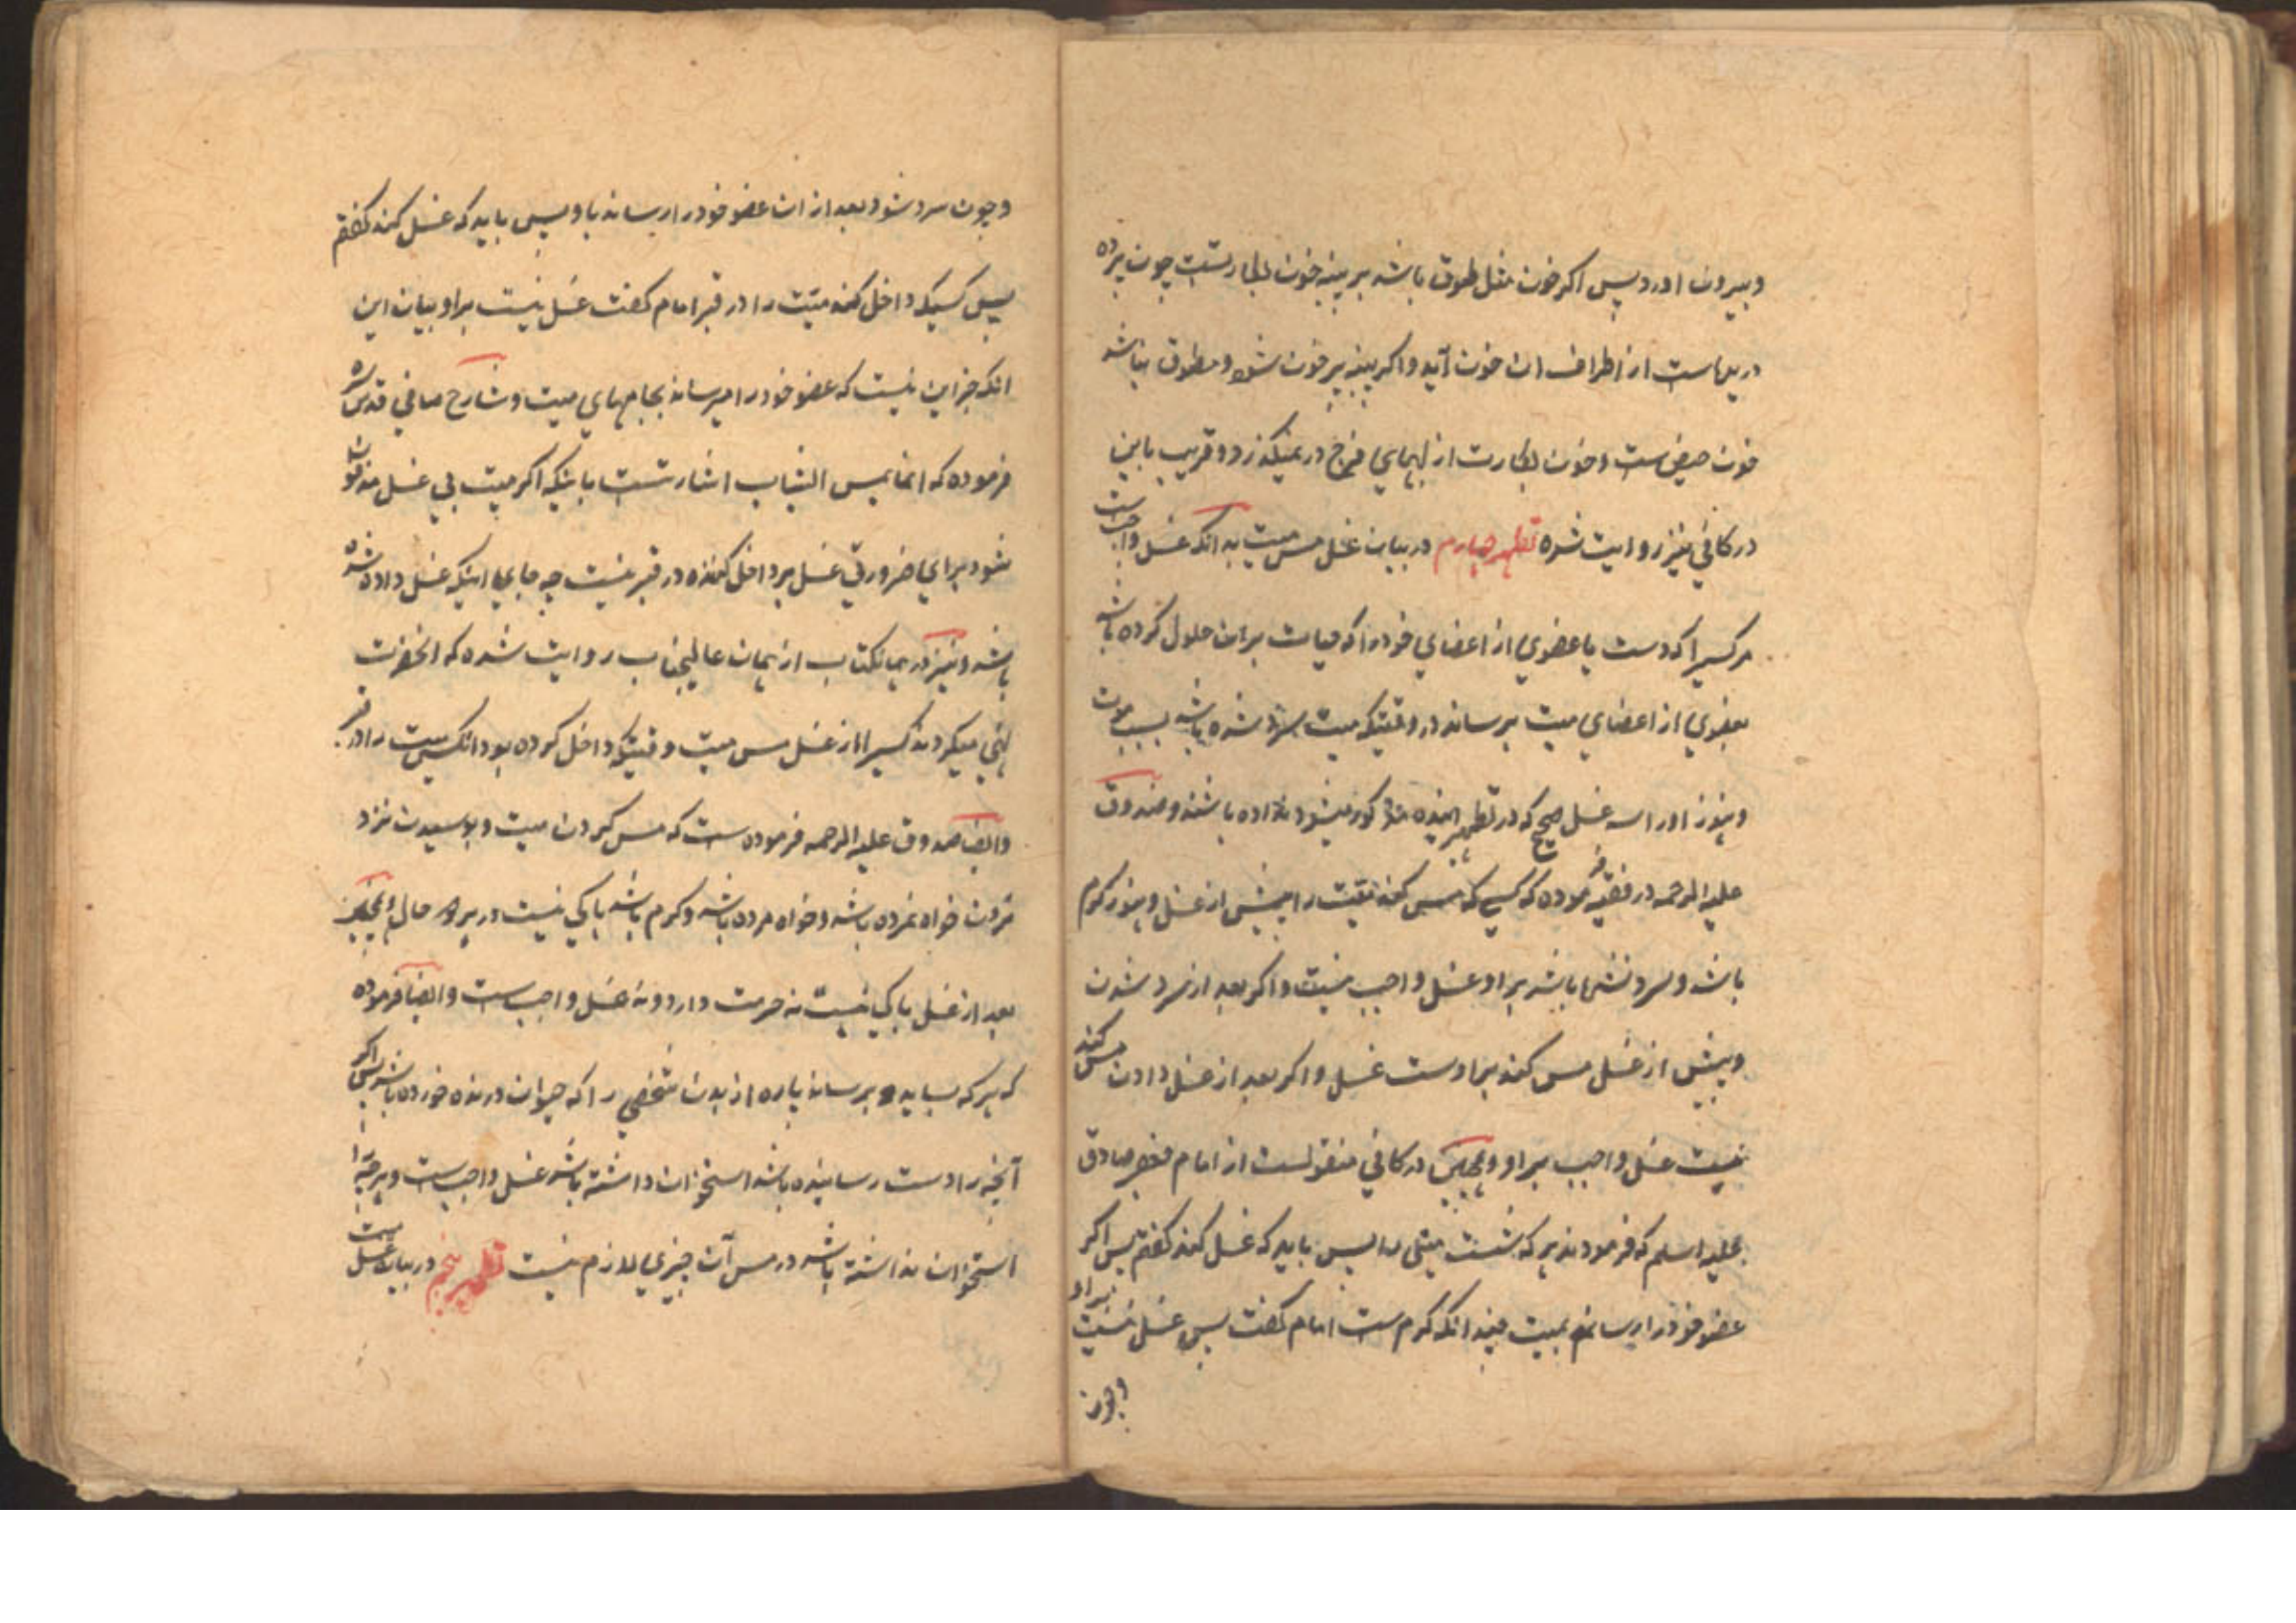 و بیرون اورد پس اکر خون مثل طوق باشد بر پنبه خون بکارتست چون پرده
دریده است از اطراف ان خون آید و اکر پنبه پر خون شود و مطوق نباشد
خون حیض ست و خون بکارت از لبهای فرج در نمیکذرد و قریب باین
در کافی نیز روایت شده تطهیر چهارم در بیان غسل مس میت بدانکه غسل واجب است
مر کسیرا که دست یا عضوی از اعضای خود را که حیات بر ان حلول کرده باشد
بعضوی از اعضای میت برساند در وقتیکه میت سرد شده باشد بسبب موت
و هنوز او را سه غسل صحیح که در تطهیر اینده مذکور میشود نداده باشند و صدوق
علیه الرحمه در فقیه فرموده که کسی که مس کند میت را پیش از غسل و هنوز کرم
باشد و سرد نشده باشد بر او غسل واجب نیست و اکر بعد از سرد شدن
و پیش از غسل مس کند بر اوست غسل و اکر بعد از غسل دادن مس کند
نیست غسل واجب بر او و همچنین در کافی منقولست از امام جعفر صادق
علیه السلم که فرمودند هر که شست میتی را پس باید که غسل کند کفتم پس اکر
عضو خود را رساند بمیت حیند انکه کرم ست امام کفت پس غسل نیست بر او
و چون
و چون سرد شود بعد از ان عضو خود را رساند باو پس باید که غسل کند کفتم
پس کسیکه داخل کند میت را در قبر امام کفت غسل نیست بر او بیان این
انکه جز این نیست که عضو خود را میرساند بجامهای میت و شارح صافی قدس سره
فرموده که انما یمس الثیاب اشارتست باینکه اکر میت بی غسل مدفون
شود برای ضرورتی غسل بر داخل کننده در قبر نیست چه جای اینکه غسل داده شده
باشد و نیز در همانکتاب از همان عالیجناب روایت شده که انحضرت
نهی میکردند کسیرا از غسل مس میت وقتیکه داخل کرده بود انکس میت را در قبر
و ایضا صدوق علیه الرحمه فرموده ست که مس کردن میت و بوسیدن نزد
مردن خواه نمرده باشد و خواه مرده باشد و کرم باشد باکی نیست در هر دو حال و همچنین
بعد از غسل باکی نیست نه حرمت دارد و نه غسل واجب ست و ایضا فرموده
که هر که بساید و برساند پاره از بدن شخصی را که حیوان درنده خورده باشد پس اکر
آنچه را دست رسانیده باشد استخوان داشته باشد غسل واجب ست و هر چه را
استخوان نداشته باشد در مس آن چیزی لازم نیست تطهیر پنجم در بیان غسل میت